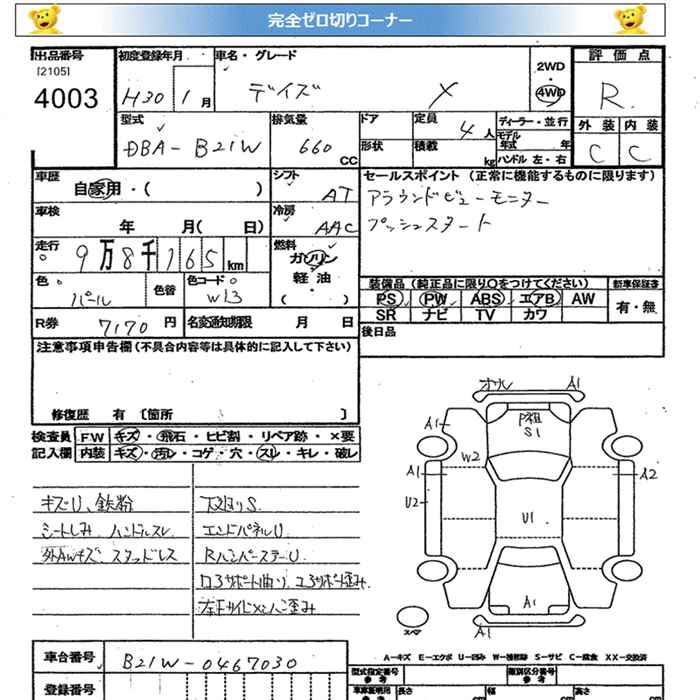 完全ゼロ切りコーナー
出品番号
[2105]
4003
初度登録年月
H30 1月
車名・グレード
デイズ X
2WD
・
4WD
評価点
R
外装 内装
C C
型式
DBA-B21W
排気量
660 CC
ドア
形状
定員 4人
積載 kg
ディーラー・並行
モデル年式 年
ハンドル 左・右
車歴
自家用・( )
シフト
AT
セールスポイント (正常に機能するものに限ります)
アラウンドビューモニター
プッシュスタート
車検
年 月( 日)
冷房
AAC
走行
9万8千165km
燃料
ガソリン
軽油
( )
色
パール
色替
色コード
W13
装備品 (純正品に限り○をつけてください)
PS PW ABS エアB AW
SR ナビ TV カワ
新車保証書
有・無
R券 7170円
名変通知期限 月 日
後日品
注意事項申告欄(不具合内容等は具体的に記入して下さい)
修復歴 有〔箇所 〕
検査員記入欄
FW キズ・飛石・ヒビ割・リペア跡・×要
内装 キズ・汚レ・コゲ・穴・スレ・キレ・破レ
キズU、鉄粉
シートしみ、ハンドルスレ
外AWキズ、スタッドレス
下廻りS
エンドパネルU
RバンパーステーU
ロアサポート曲り、コアサポート歪み
オサレ A1
A1
P祖
S1
W2
A1
U2
A2
U1
A1
A1
スペア
A-キズ E-エクボ U-凹み W-補修跡 S-サビ C-腐食 XX-交換済
車台番号
B21W-0467030
登録番号
型式指定番号
参考
類別区分番号
参考
車車証明用
参考
長さ cm
幅 cm
高さ cm